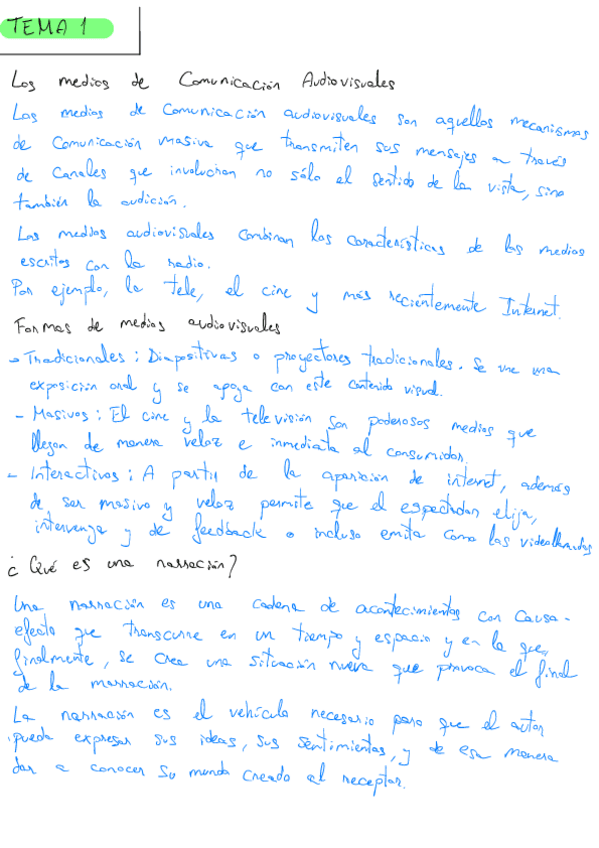 TEMA 1
Los medios de Comunicación Audiovisuales
Los medios de Comunicación audiovisuales son aquellos mecanismos
de Comunicación masiva que transmiten sus mensajes a través
de Canales que involucran no sólo el sentido de la vista, sino
también la audición.
Los medios audiovisuales combinan las características de los medios
escritos con la radio.
Por ejemplo, la tele, el cine y más recientemente Internet.
Formas de medios audiovisuales
→ Tradicionales: Diapositivas o proyectores tradicionales. Se une una
exposición oral y se apoya con este contenido visual.
- Masivos: El cine y la televisión son poderosos medios que
llegan de manera veloz e inmediata al consumidor.
- Interactivos: A partir de la aparición de internet, además
de ser masivo y veloz permite que el espectador elija,
intervenga y de feedback o incluso emita como las videollamadas
¿Qué es una narración?
Una narración es una cadena de acontecimientos con Causa-
efecto que transcurre en un tiempo y espacio y en la que,
finalmente, se crea una situación nueva que provoca el final
de la narración.
La narración es el vehículo necesario para que el autor
pueda expresar sus ideas, sus sentimientos, y de esa manera
dar a conocer su mundo creado al receptor.